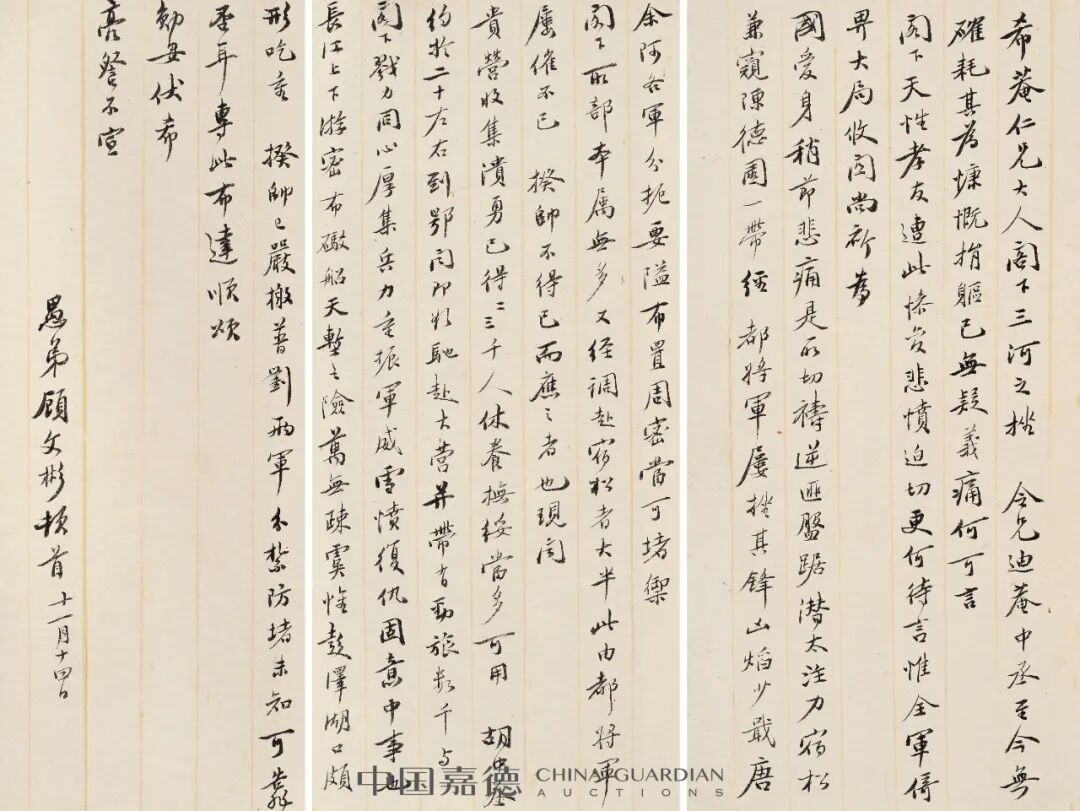 希菴仁兄大人閣下三河之挫　令兄迪菴中丞至今無
確耗其為慷慨捐軀已無疑義痛何可言
閣下天性孝友遭此慘變悲憤迫切更何待言惟全軍倚
畀大局攸關尚祈為
國愛身稍節悲痛是所切禱逆匪盤踞潛太注力宿松
兼窺陳德園一帶經　都將軍屢挫其鋒凶焰少戢唐
余阿各軍分扼要隘布置周密當可堵禦
閣下所部本屬無多又經調赴宿松者大半此由都將軍
屢催不已　揆帥不得已而應之者也現聞
貴營收集潰勇已得二三千人休養撫綏當多可用　胡中丞
約於二十左右到鄂聞即擬馳赴大營并帶有勁旅數千與
閣下戮力同心厚集兵力重振軍威雪憤復仇固意中事也
長江上下游密布礮船天塹之險萬無疎虞惟彭澤湖口頗
形吃重　揆帥已嚴檄普劉兩軍分禁防堵未知可靠
否耳專此布達順頌
勛安伏希
亮詧不宣
愚弟顧文彬頓首　十一月十四日
中国嘉德 CHINA GUARDIAN AUCTIONS